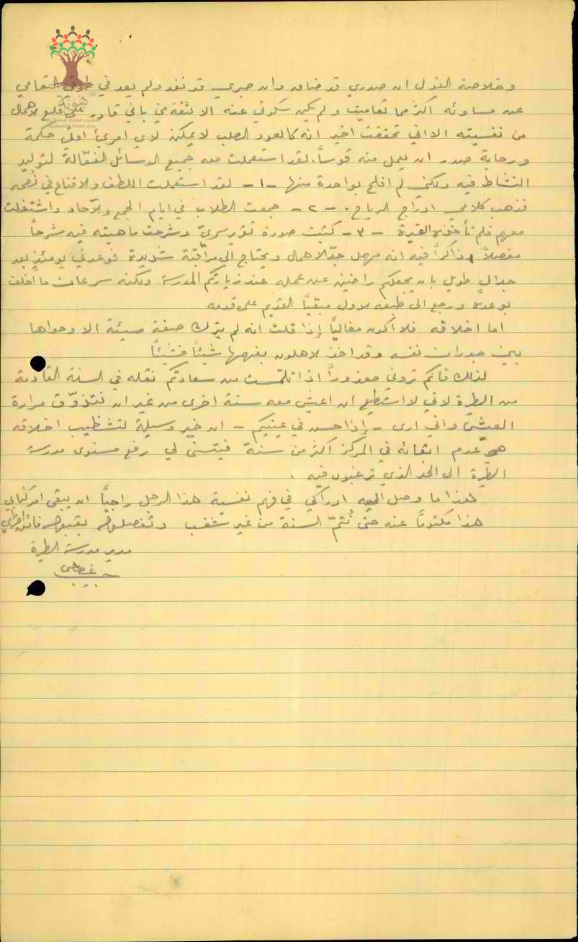 وخلاصة القول ان صدري قد ضاق وان صبري قد نفد ولم يعد في طوقي التعامي
عن مساوئه اكثر مما تعاميت ولم يكن سكوتي عنه الا لثقة في باني قادر على قلع الاهمال
من نفسيته الا اني تحققت اخيراً انه كالعود الصلب لا يمكن لاي امرئ اوتي حكمة
ورحابة صدر ان يعمل منه قوساً. لقد استعملت معه جميع الوسائل الفعّالة لتوليد
النشاط فيه ولكن لم افلح بواحدة منها - ١ - لقد استعملت اللطف والاقناع في نصحه
فذهب كلامي ادراج الرياح. - ٢ - جمعت الطلاب في ايام الجمع والآحاد واشتغلت
معهم فلم تأخذه الغيرة - ٣ - كتبت صورة تقرير سريّ وشرحت ماهيته فيه شرحاً
مفصلاً وذاكراً فيه انه مهمل جدّ الاهمال ويحتاج الى مراقبة شديدة فوعدني يومئذٍ بعد
جدال طويل بان يجعلكم راضين عن عمله عند زيارتكم المدرسة ولكنه سرعان ما اخلف
بوعده ورجع الى طبعه الاول مبقياً القديم على قدمه
اما اخلاقه فلا اكون مغالياً إذا قلت انه لم يترك صفة سيئة الا وحواها
بين جدران نفسه وقد اخذ الاهلون يفهمها شيئاً فشيئاً
لذلك فانكم تروني معذوراً اذا التمست من سعادتكم نقله في السنة القادمة
من الطيرة لاني لا استطيع ان اعيش معه سنة اخرى من غير ان نتذوّق مرارة
العيش واني ارى - إذا حسن في عينيكم - ان خير وسيلة لتشظيب اخلاقه
هو عدم ابقائه في المركز اكثر من سنة فيتسنى لي رفع مستوى مدرسة
الطيرة الى الحد الذي ترغبون فيه.
هذا ما وصل اليه ادراكي في فهم نفسية هذا الرجل راجياً ان يبقى
هذا مكتوماً عنه حتى نتمّ السنة من غير شغب وتفضلوا بقبول فائق
مدير مدرسة الطيرة